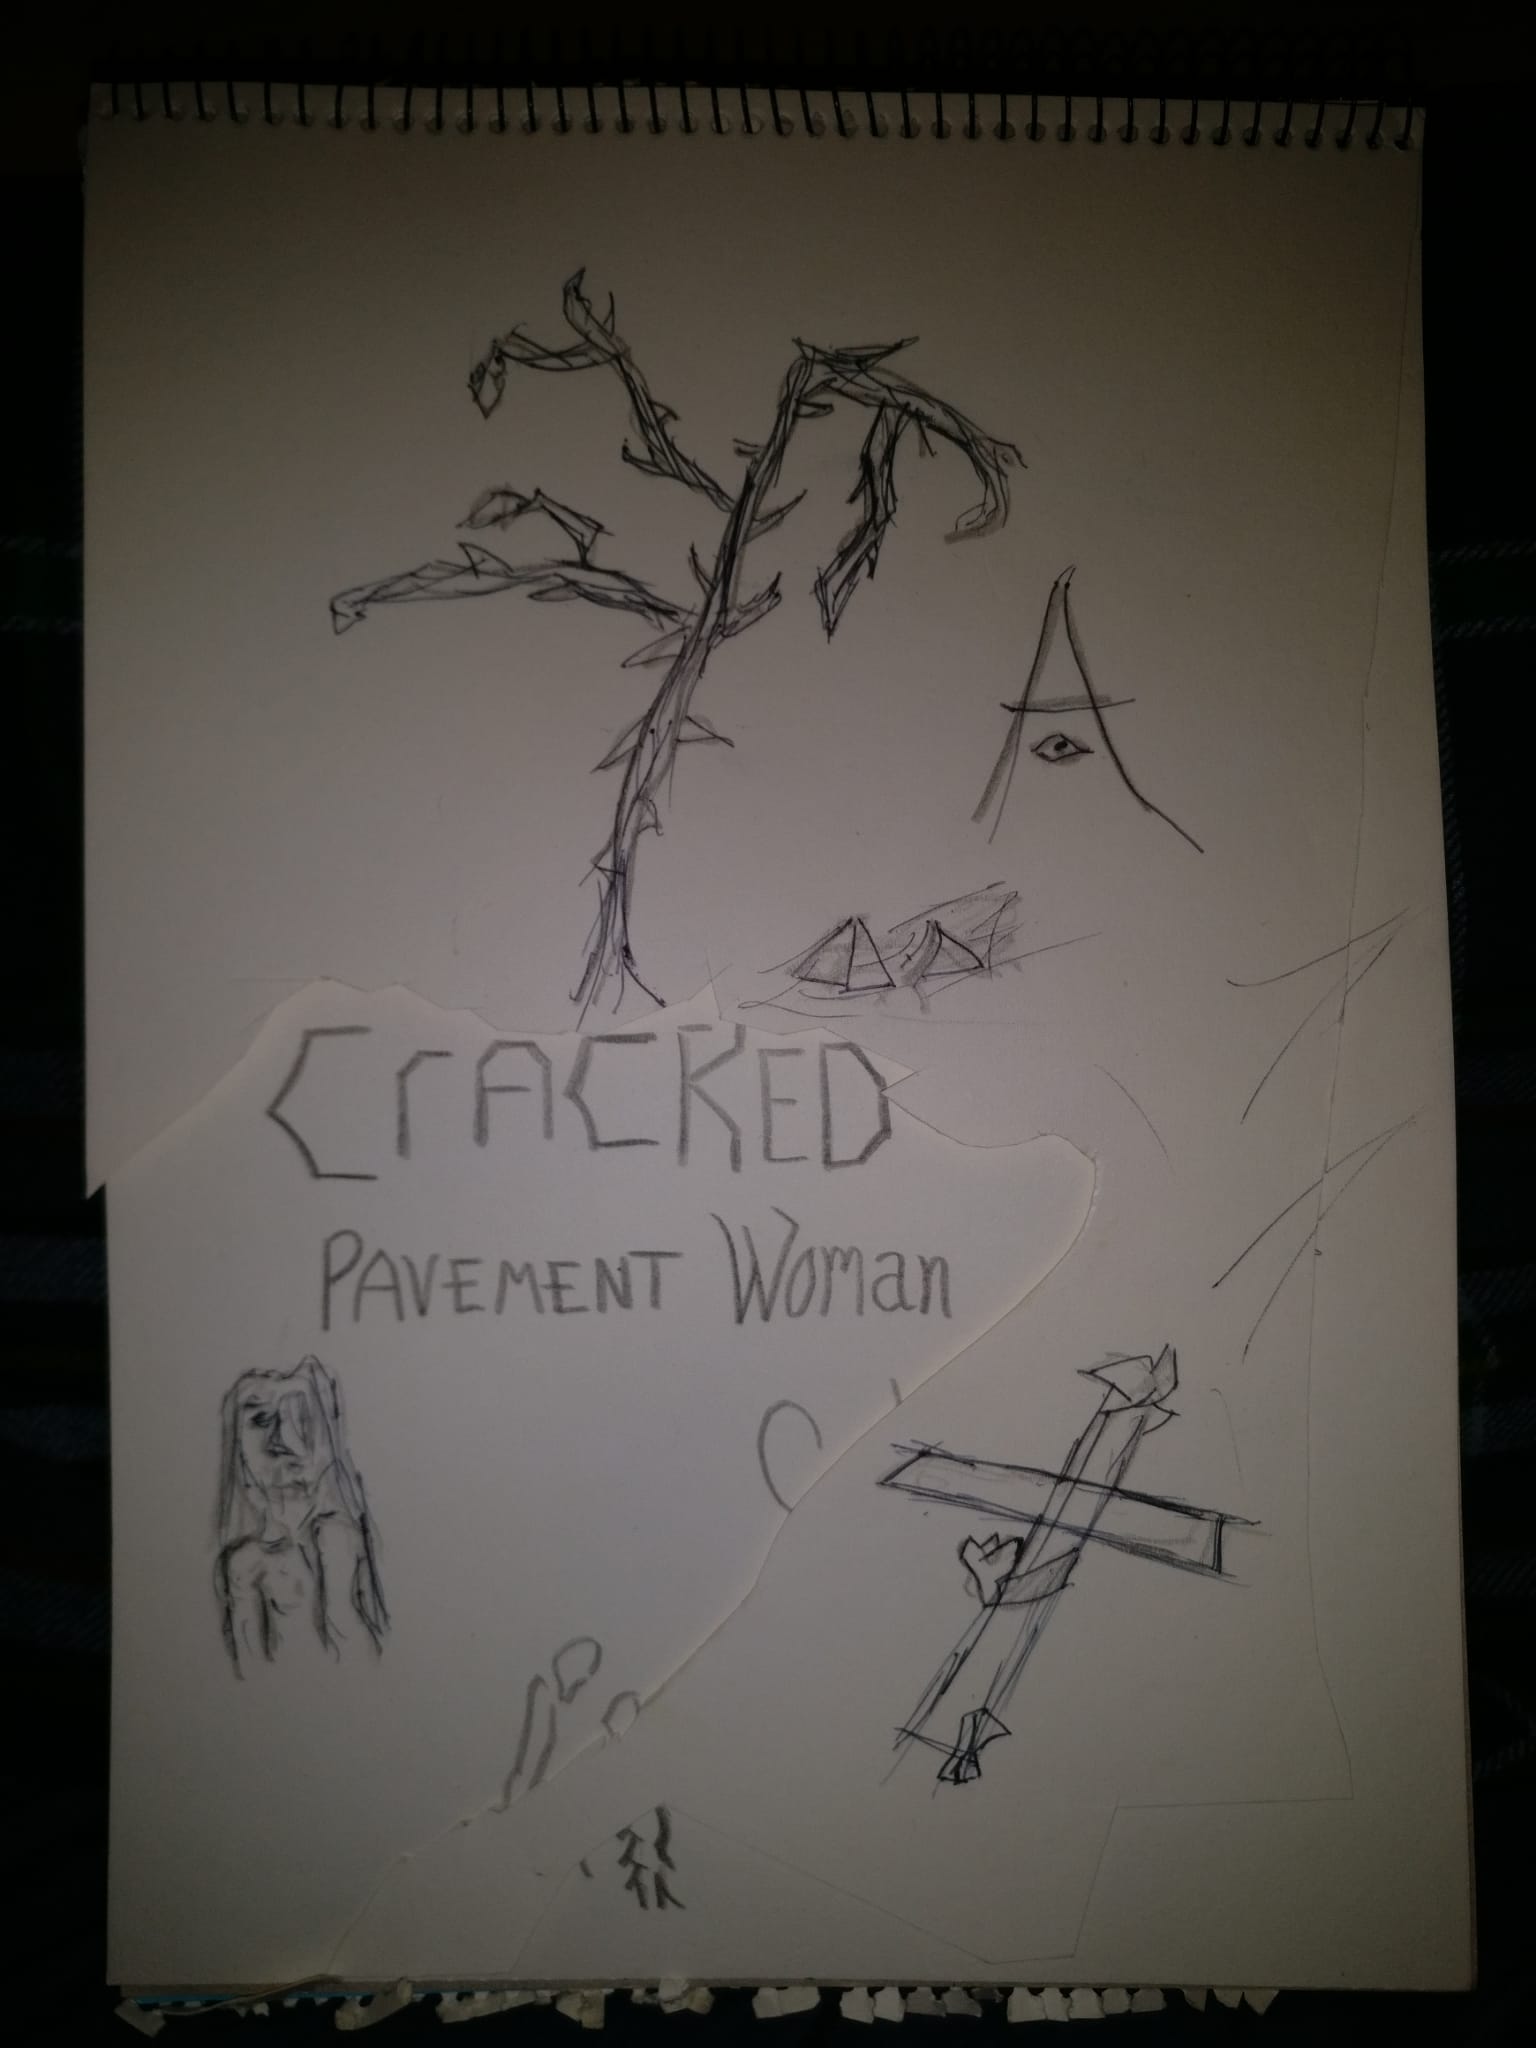 A
CrACKED
PAVEMENT Woman